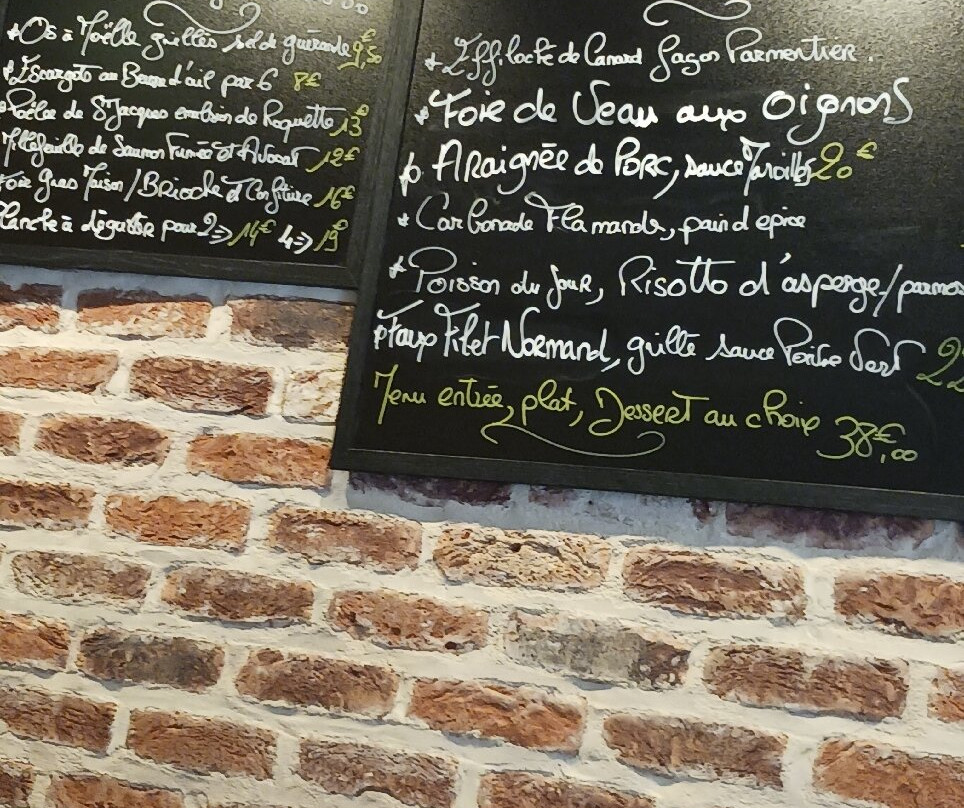 Os à Moëlle grillés sel de guérande 9€,50
Escargots au Beurre d'ail par 6 8€
Poêlée de St Jacques embrun de Roquette 13€
Millefeuille de Saumon Fumé et Avocat 12€
Foie Gras Maison/Brioche et Confiture 16€
Planche à déguster pour 2 => 14€ 4 => 19€
* Effiloché de Canard façon Parmentier.
* Foie de Veau aux Oignons
Araignée de Porc, sauce Maroilles 20€
* Carbonade Flamande, pain d'epice
* Poisson du Jour, Risotto d'asperge/parmes
Faux Filet Normand, grillé sauce Poivre Vert 22
Menu entrée, plat, Dessert au choix 38€,00